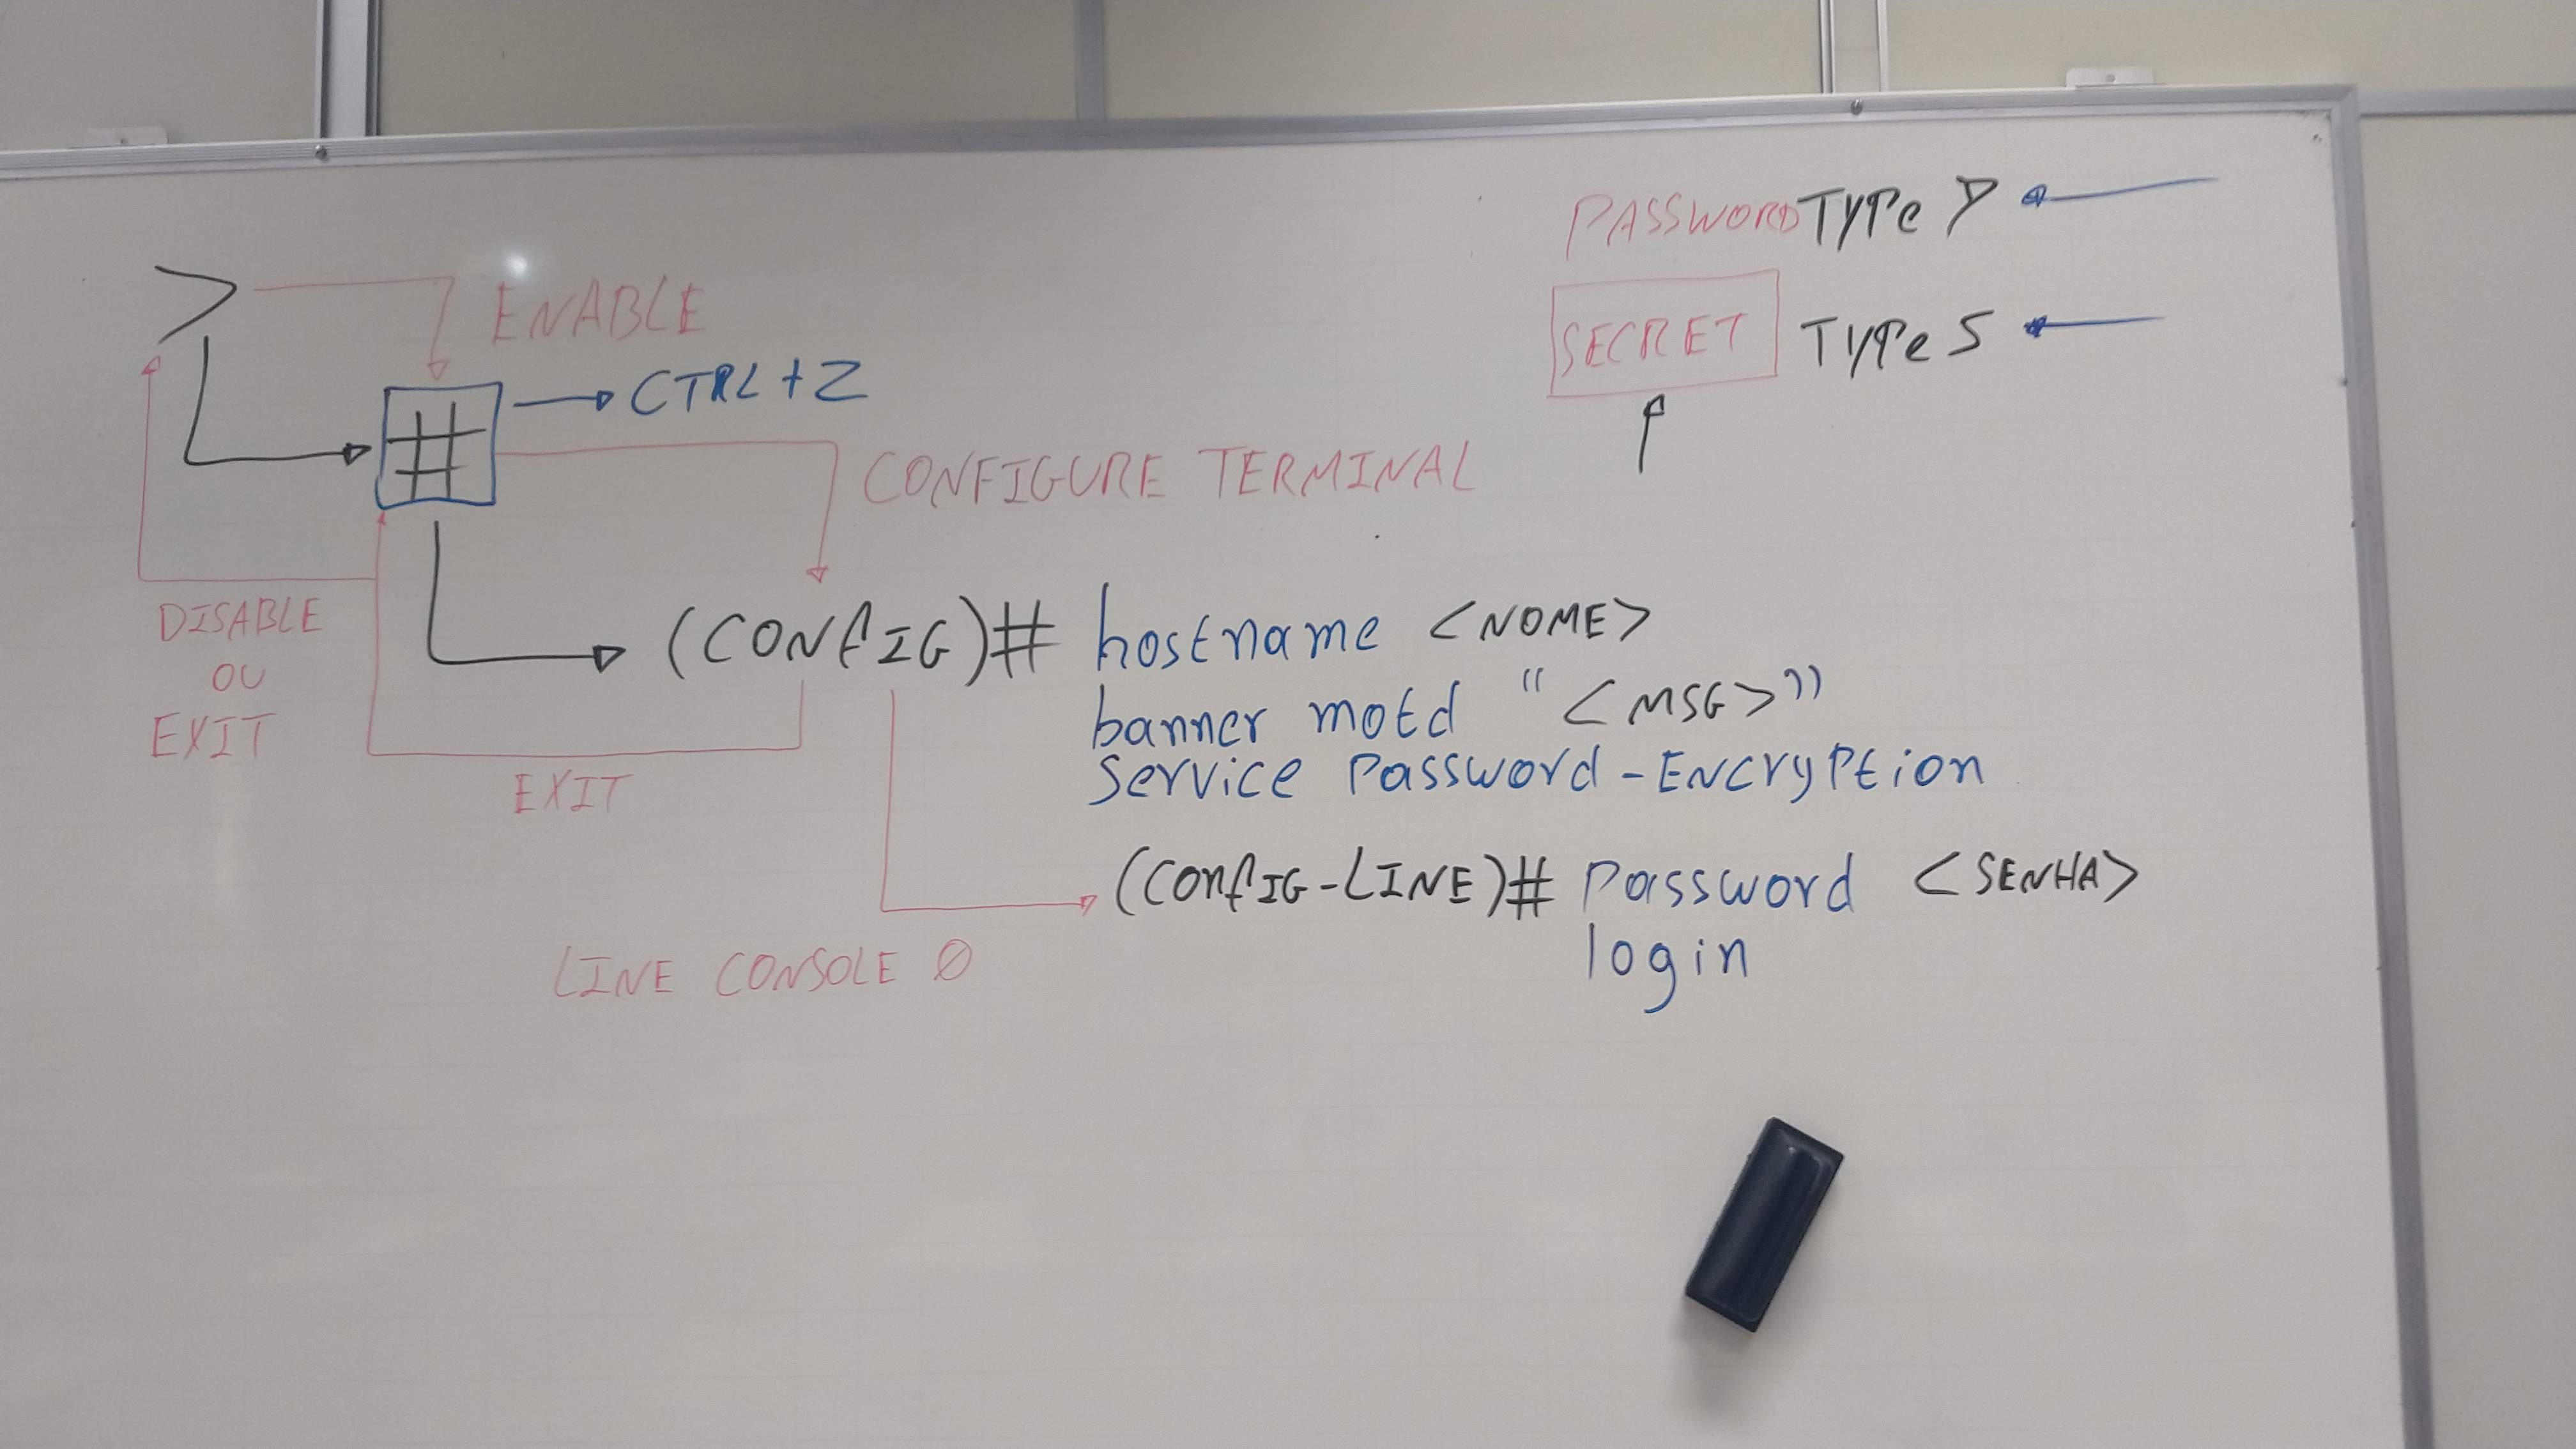 PASSWORD TYPE 7
> ENABLE
SECRET TYPE 5
# CTRL+Z
CONFIGURE TERMINAL
DISABLE
OU
EXIT
(CONFIG)# hostname <NOME>
banner motd "<MSG>"
Service Password-ENCryPtion
EXIT
(CONFIG-LINE)# Password <SENHA>
login
LINE CONSOLE 0